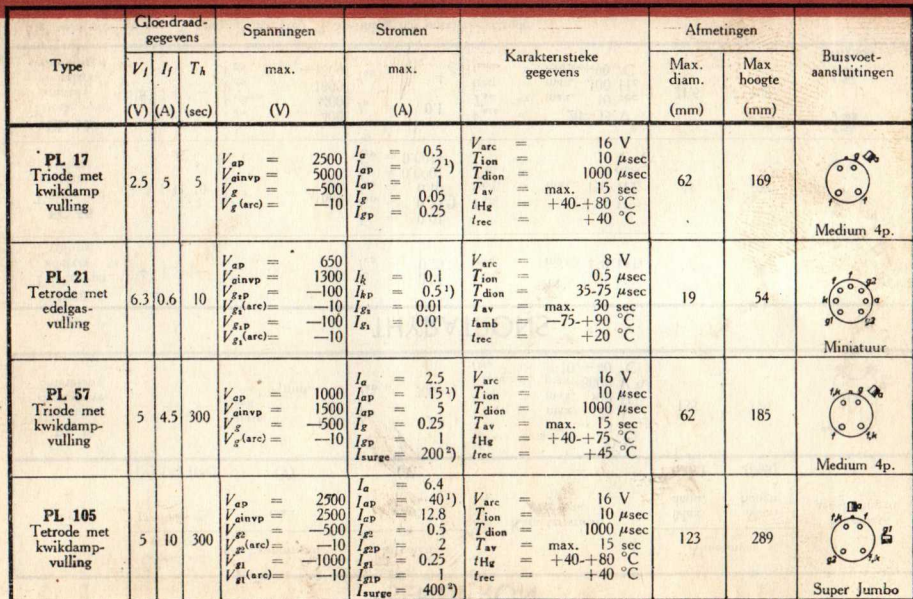 Type
Gloeidraad-
gegevens
Spanningen
Stromen
Karakteristieke
gegevens
Afmetingen
Buisvoet-
aansluitingen
Vf If Th
max.
max.
Max.
diam.
Max
hoogte
(V) (A) (sec)
(V)
(A)
(mm)
(mm)
PL 17
Triode met
kwikdamp
vulling
2.5 5 5
Vap = 2500
Vainvp = 5000
Vg = —500
Vg (arc) = —10
Ia = 0.5
Iap = 2¹)
Iap = 1
Ig = 0.05
Igp = 0.25
Varc = 16 V
Tion = 10 μsec
Tdion = 1000 μsec
Tav = max. 15 sec
tHg = +40-+80 °C
trec = +40 °C
62
169
g a
f f
Medium 4p.
PL 21
Tetrode met
edelgas-
vulling
6.3 0.6 10
Vap = 650
Vainvp = 1300
Vg2p = —100
Vg2(arc) = —10
Vg1p = —100
Vg1(arc) = —10
Ik = 0.1
Ikp = 0.5¹)
Ig2 = 0.01
Ig1 = 0.01
Varc = 8 V
Tion = 0.5 μsec
Tdion = 35-75 μsec
Tav = max. 30 sec
tamb = —75-+90 °C
trec = +20 °C
19
54
f f g2
k a
g1 g2
Miniatuur
PL 57
Triode met
kwikdamp-
vulling
5 4.5 300
Vap = 1000
Vainvp = 1500
Vg = —500
Vg (arc) = —10
Ia = 2.5
Iap = 15¹)
Iap = 5
Ig = 0.25
Igp = 1
Isurge = 200²)
Varc = 16 V
Tion = 10 μsec
Tdion = 1000 μsec
Tav = max. 15 sec
tHg = +40-+75 °C
trec = +45 °C
62
185
f,k g a
f f,k
Medium 4p.
PL 105
Tetrode met
kwikdamp-
vulling
5 10 300
Vap = 2500
Vainvp = 2500
Vg2 = —500
Vg2(arc) = —10
Vg1 = —1000
Vg1(arc) = —10
Ia = 6.4
Iap = 40¹)
Iap = 12.8
Ig2 = 0.5
Ig2p = 2
Ig1 = 0.25
Ig1p = 1
Isurge = 400²)
Varc = 16 V
Tion = 10 μsec
Tdion = 1000 μsec
Tav = max. 15 sec
tHg = +40-+80 °C
trec = +40 °C
123
289
a
f,k f g1
g2 f,k
Super Jumbo